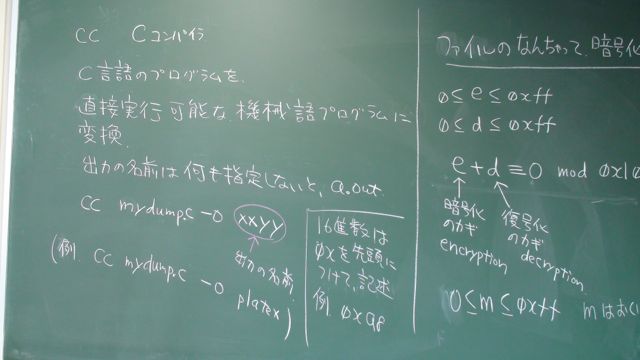 CC Cコンパイラ
C言語のプログラムを
直接実行可能な機械語プログラムに
変換.
出力の名前は何も指定しないと, a.out
CC mydump.c -o xxyy
出力の名前.
(例. CC mydump.c -o
platex)
16進数は
0xを先頭に
つけて, 記述
例. 0xa8
ファイルのなんちゃって暗号化
0≤e≤0xff
0≤d≤0xff
e+d≡0 mod 0x10
暗号化
のカギ
encryption
復号化
のカギ
decryption
0≤m≤0xff mは